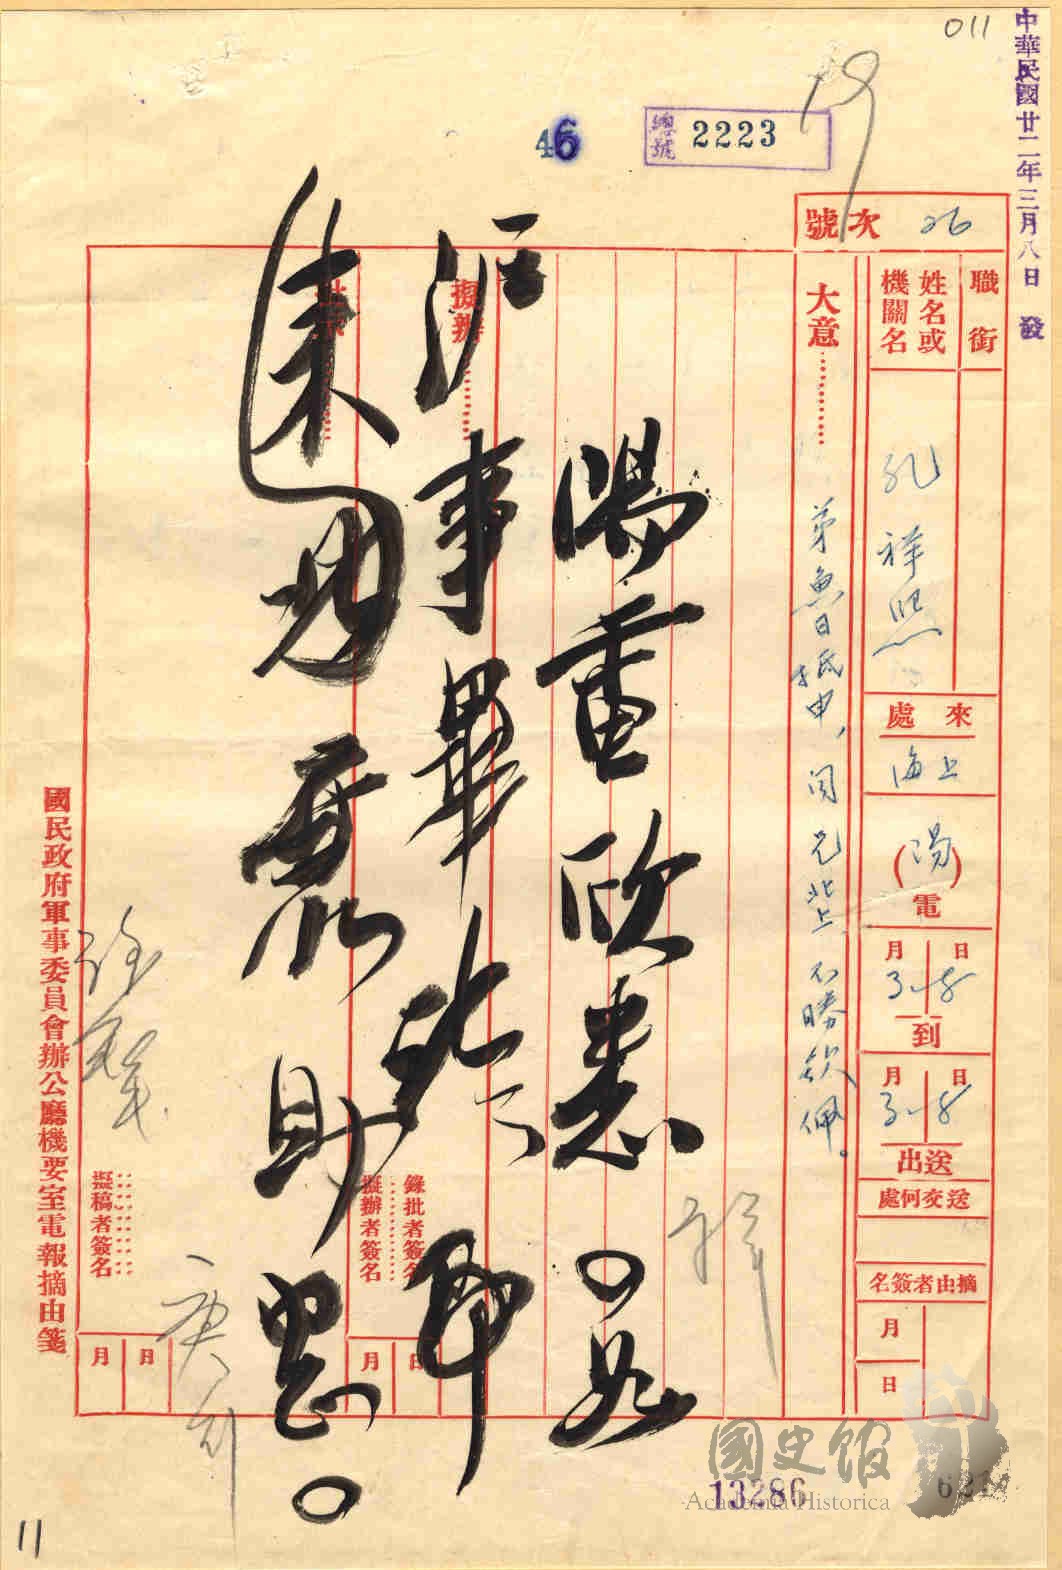 中華民國廿二年三月八日 發
011
總號 2223
46
號次 26
職銜
姓名或機關名 孔祥熙
來處 上海
(陽)電
3月8日到
3月8日送出
送交何處
摘由者簽名
月
日
大意 弟魚日抵申、聞兄北上不勝欽佩。
陽電欣悉。如
擬辦
滬事畢 即
批示
來 助
錄批者簽名
擬辦者簽名
月 日
擬稿者簽名
月 日
國民政府軍事委員會辦公廳機要室電報摘由箋
國史館
Academia Historica
13286
11